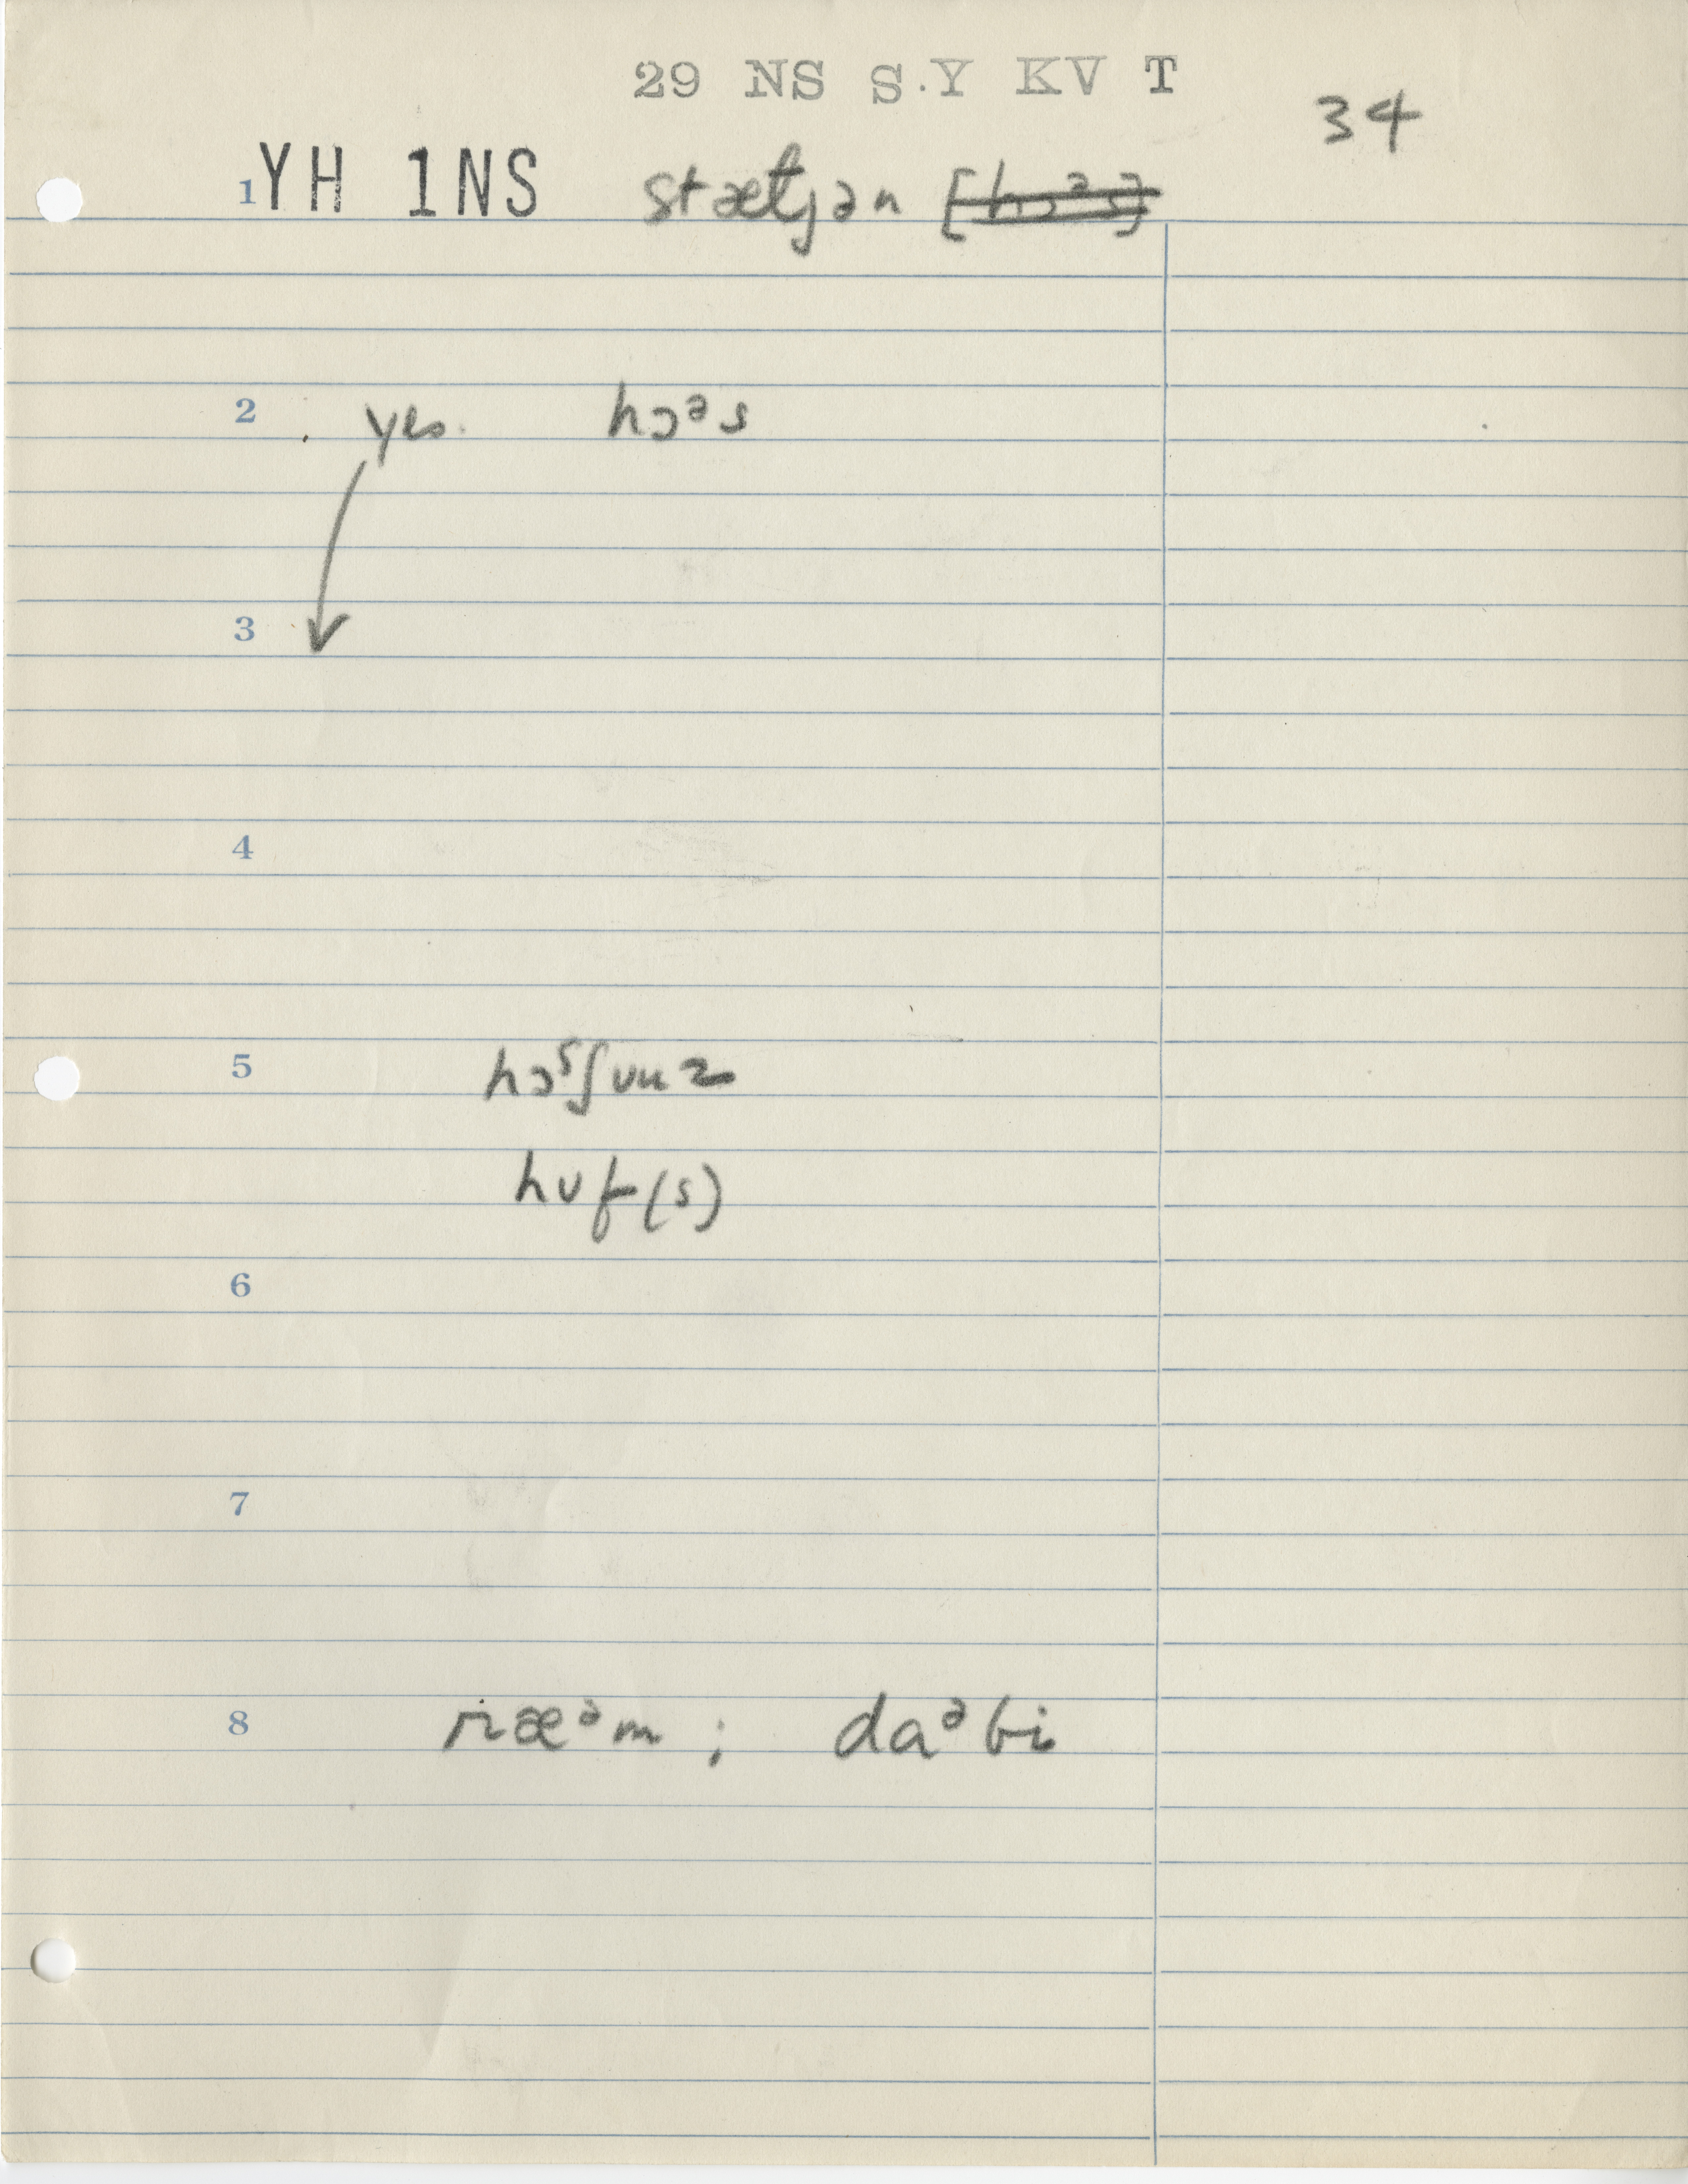 29 NS S.Y KV T
34
1 YH 1NS stætjən [hɔᵊs]
2 yes. hɔᵊs
3
4
5 hɔˢʃuuz
huf(s)
6
7
8 ræᵊm ; daᵊbi